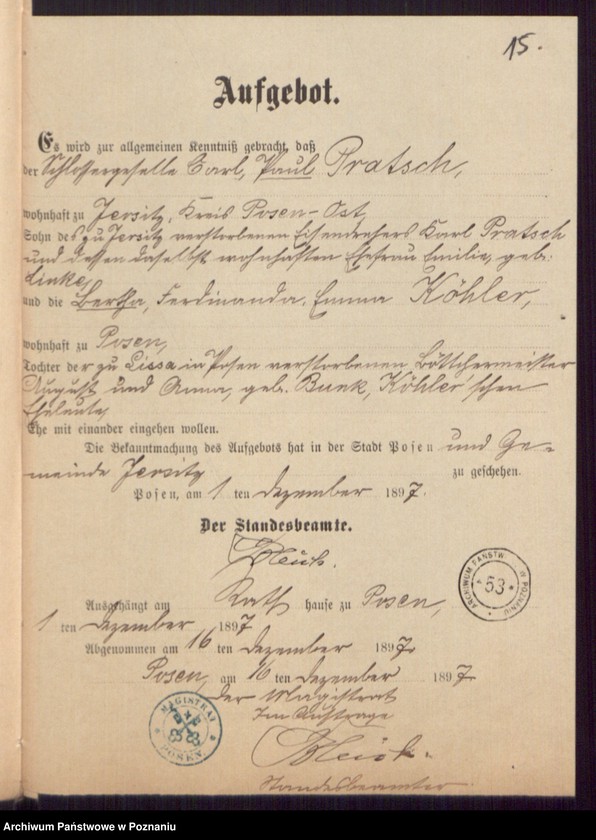 15.
Aufgebot.
Es wird zur allgemeinen Kenntniß gebracht, daß
der Schlossergeselle Carl, Paul Pratsch,
wohnhaft zu Jersitz, Kreis Posen-Ost,
Sohn des zu Jersitz verstorbenen Eisendrehers Karl Pratsch
und dessen daselbst wohnhaften Ehefrau Emilie, geb.
Linke,
und die Bertha, Ferdinanda, Emma Köhler,
wohnhaft zu Posen,
Tochter der zu Lissa in Posen verstorbenen Böttchermeister
August und Anna, geb. Bunk, Köhler'schen
Eheleute,
Ehe mit einander eingehen wollen.
Die Bekanntmachung des Aufgebots hat in der Stadt Posen und Ge-
meinde Jersitz zu geschehen.
Posen, am 1 ten Dezember 1897.
Der Standesbeamte.
Ausgehängt am Rathhause zu Posen,
1 ten Dezember 1897
Abgenommen am 16 ten Dezember 1897
Posen, am 16 ten Dezember 1897
Der Magistrat
Im Auftrage
Standesbeamter
MAGISTRAT POSEN
ARCHIWUM PAŃSTW. W POZNANIU
53
Archiwum Państwowe w Poznaniu